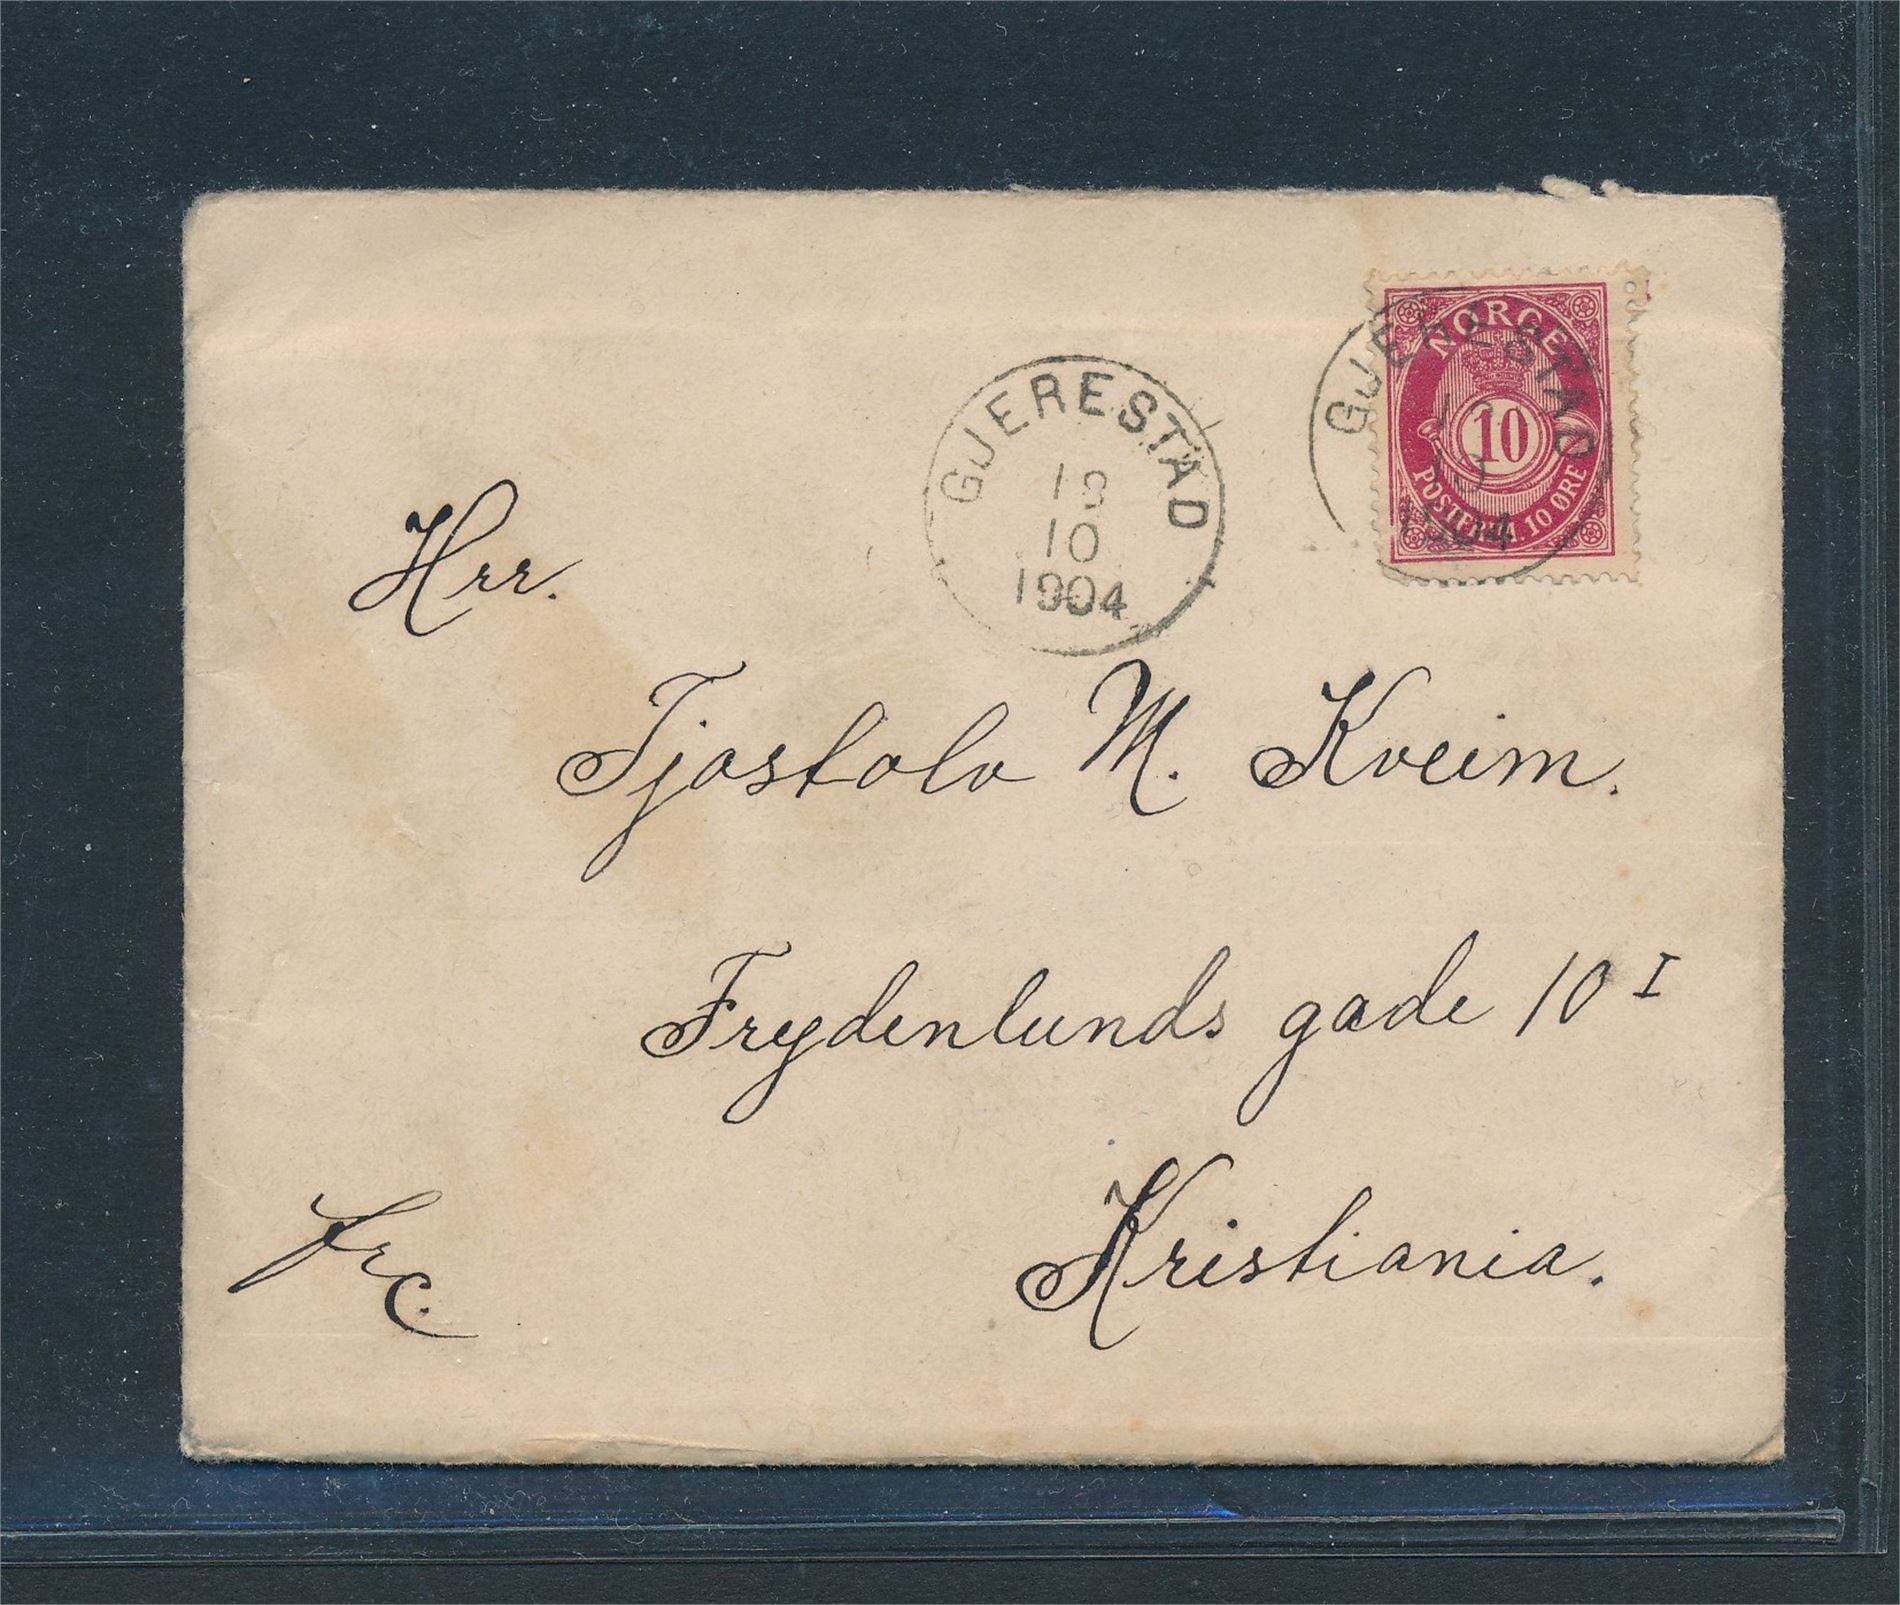 NORGE
10
POSTFRIM. 10 ØRE
GJERESTAD
10
1904
GJERESTAD
10
1904
Hrr.
Tjostolv M. Kveim.
Frydenlunds gade 10 I
Kristiania.
Frc.